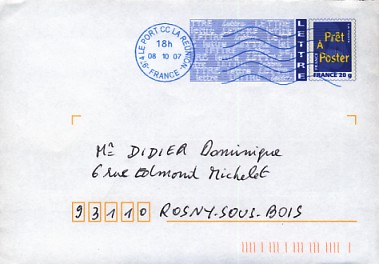 974 LE PORT CC LA REUNION
18h
08 10 07
FRANCE
LETTRE
Prêt
À
Poster
FRANCE 20 g
Mr DIDIER Dominique
6 rue Edmond Michelet
93110 ROSNY-SOUS-BOIS